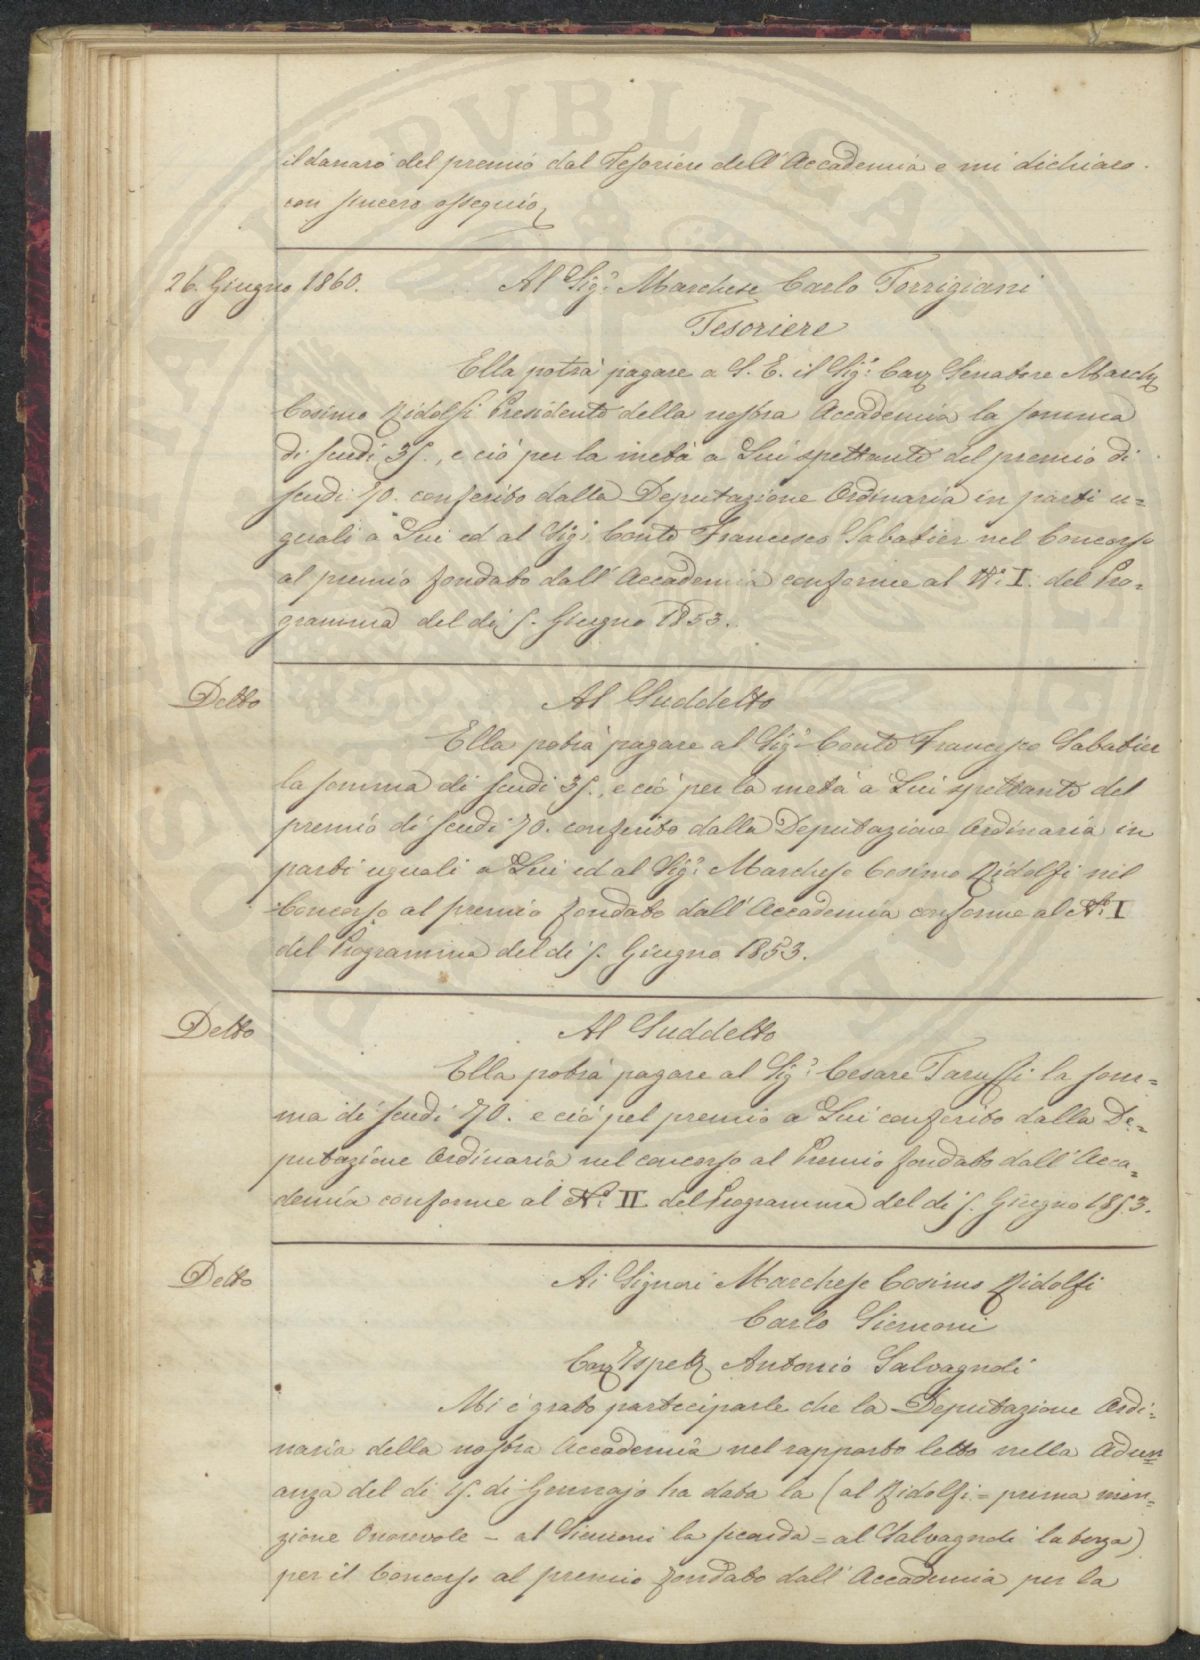 il danaro del premio dal Tesoriere dell'Accademia e mi dichiaro
con sincero ossequio
26. Giugno 1860.
Al Sig.r Marchese Carlo Torrigiani
Tesoriere
Ella potrà pagare a S. E. il Sig.r Cav. Senatore March.
Cosimo Ridolfi Presidente della nostra Accademia la somma
di scudi 35., e ciò per la metà a Lui spettante del premio di
scudi 70. conferito dalla Deputazione Ordinaria in parti u=
guali a Lui ed al Sig.r Conte Francesco Sabatier nel Concorso
al premio fondato dall'Accademia conforme al N.o I. del Pro=
gramma del dì 5. Giugno 1853.
Detto
Al Suddetto
Ella potrà pagare al Sig.r Conte Francesco Sabatier
la somma di scudi 35., e ciò per la metà a Lui spettante del
premio di scudi 70. conferito dalla Deputazione Ordinaria in
parti uguali a Lui ed al Sig.r Marchese Cosimo Ridolfi nel
Concorso al premio fondato dall'Accademia conforme al N.o I
del Programma del dì 5. Giugno 1853.
Detto
Al Suddetto
Ella potrà pagare al Sig.r Cesare Taruffi la som=
ma di scudi 70. e ciò pel premio a Lui conferito dalla De=
putazione Ordinaria nel concorso al Premio fondato dall'Acca=
demia conforme al N.o II del Programma del dì 5. Giugno 1853.
Detto
Ai Signori Marchese Cosimo Ridolfi
Carlo Siemoni
Cav. Ispett. Antonio Salvagnoli
Mi è grato parteciparle che la Deputazione Ordi=
naria della nostra Accademia nel rapporto letto nella Adun=
anza del dì 15. di Gennajo ha data la (al Ridolfi = prima men=
zione Onorevole – al Siemoni la seconda = al Salvagnoli la terza)
per il Concorso al premio fondato dall'Accademia per la